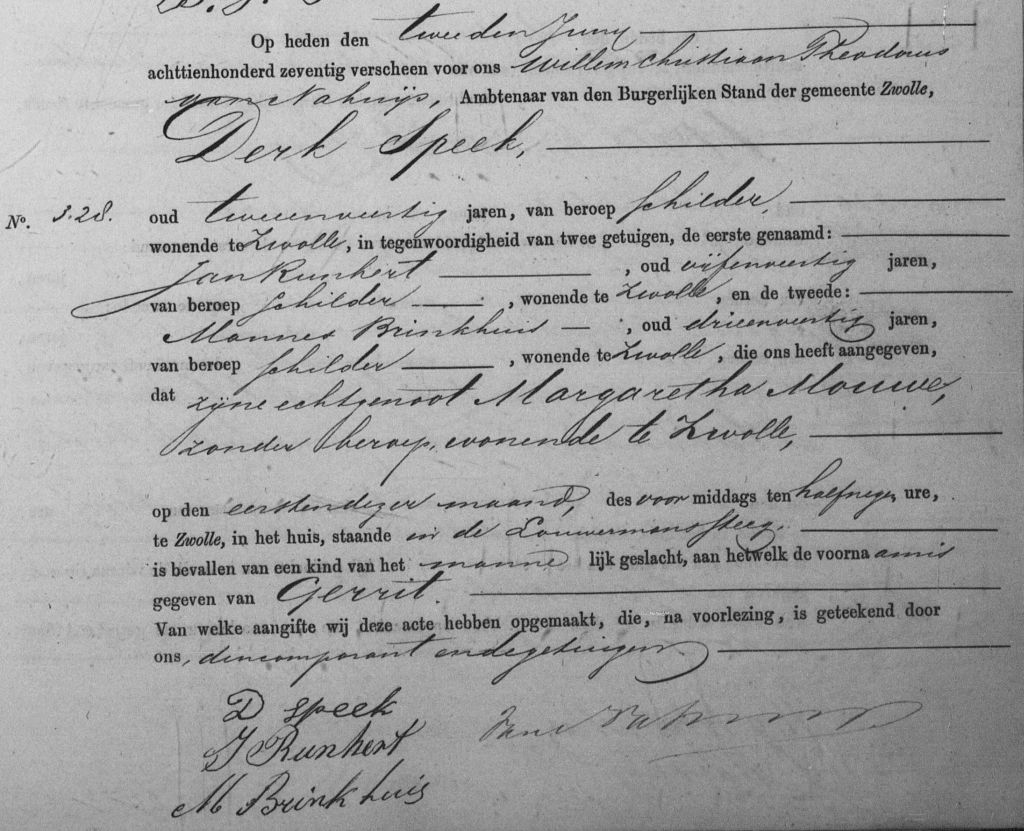 Op heden den tweeden Juny
achttienhonderd zeventig verscheen voor ons Willem Christiaan Theodorus
van Nahuijs, Ambtenaar van den Burgerlijken Stand der gemeente Zwolle,
Derk Speek,
No. 328. oud tweeenveertig jaren, van beroep schilder,
wonende te Zwolle, in tegenwoordigheid van twee getuigen, de eerste genaamd:
Jan Runhert , oud vijfenveertig jaren,
van beroep schilder , wonende te Zwolle, en de tweede:
Mannes Brinkhuis , oud drieenveertig jaren,
van beroep schilder , wonende te Zwolle, die ons heeft aangegeven,
dat zijne echtgenoot Margaretha Mouwe,
zonder beroep, wonende te Zwolle,
op den eersten dezer maand, des voor middags ten half negen ure,
te Zwolle, in het huis, staande in de Louwermanssteeg.
is bevallen van een kind van het manne lijk geslacht, aan hetwelk de voorna am is
gegeven van Gerrit.
Van welke aangifte wij deze acte hebben opgemaakt, die, na voorlezing, is geteekend door
ons, den comparant en de getuigen.
D Speek
J Runhert
M Brinkhuis
van Nahuijs